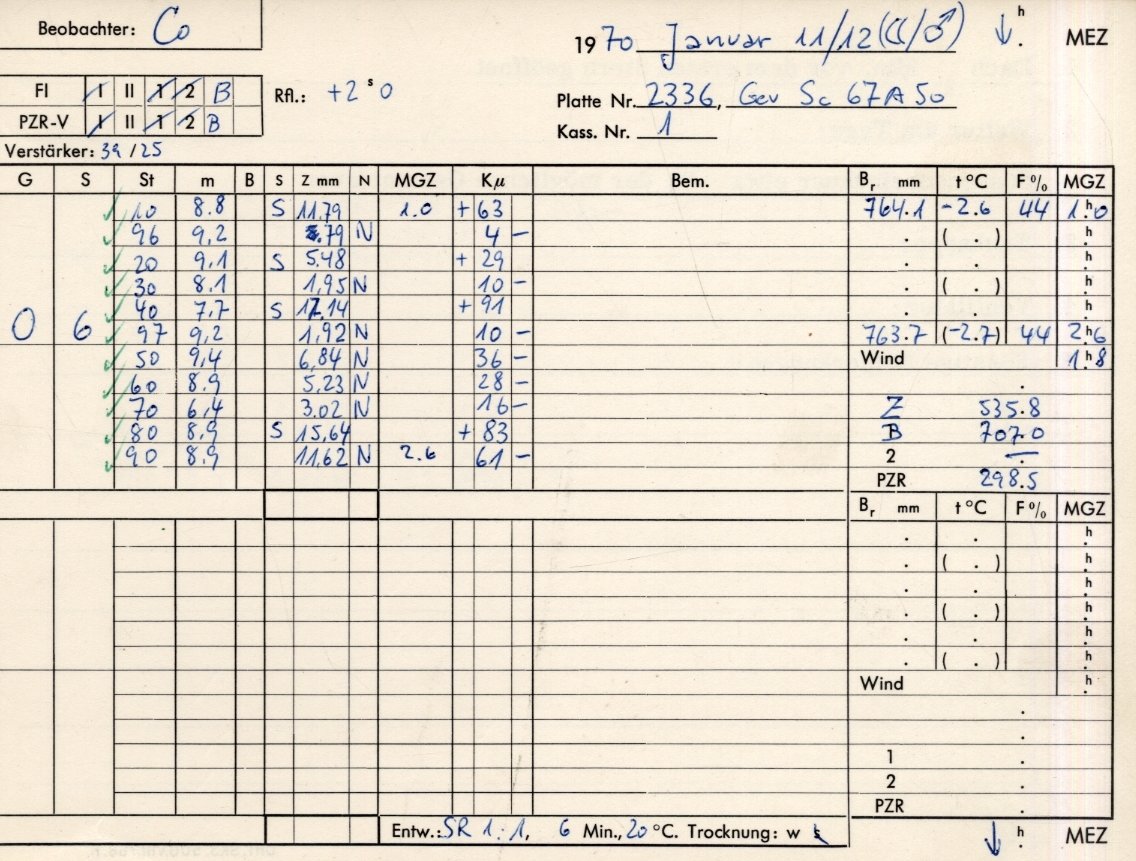 Beobachter: Co
1970 Januar 11/12 (☾/♂) ↓ h. MEZ
FI I II 1 2 B
Rfl.: +2 s 0
Platte Nr. 2336, Gev Sc 67A50
PZR-V I II 1 2 B
Kass. Nr. 1
Verstärker: 39 / 25
G S St m B S Z mm N MGZ Kμ Bem. Br mm t °C F % MGZ
✓ 10 8.8 S 11,79 1.0 + 63 764.1 -2.6 44 1.h0
✓ 96 9,2 .79 N 4 - . ( . ) h.
✓ 20 9,1 S 5.48 + 29 . . h.
✓ 30 8.1 1,95 N 10 - . ( . ) h.
✓ 40 7.7 S 17.14 + 91 . . h.
0 6 ✓ 97 9,2 1,92 N 10 - 763.7 (-2.7) 44 2.h6
✓ 50 9,4 6,84 N 36 - Wind 1.h8
✓ 60 8.9 5,23 N 28 - .
✓ 70 6,4 3.02 N 16 - Z 535.8
✓ 80 8.9 S 15,64 + 83 B 707.0
✓ 90 8.9 11,62 N 2.6 61 - 2 —.
PZR 298.5
Br mm t °C F % MGZ
. . h.
. ( . ) h.
. . h.
. ( . ) h.
. . h.
. ( . ) h.
Wind h.
.
.
1 .
2 .
PZR .
Entw.: SR 1:1, 6 Min., 20 °C. Trocknung: w k
↓ h. MEZ